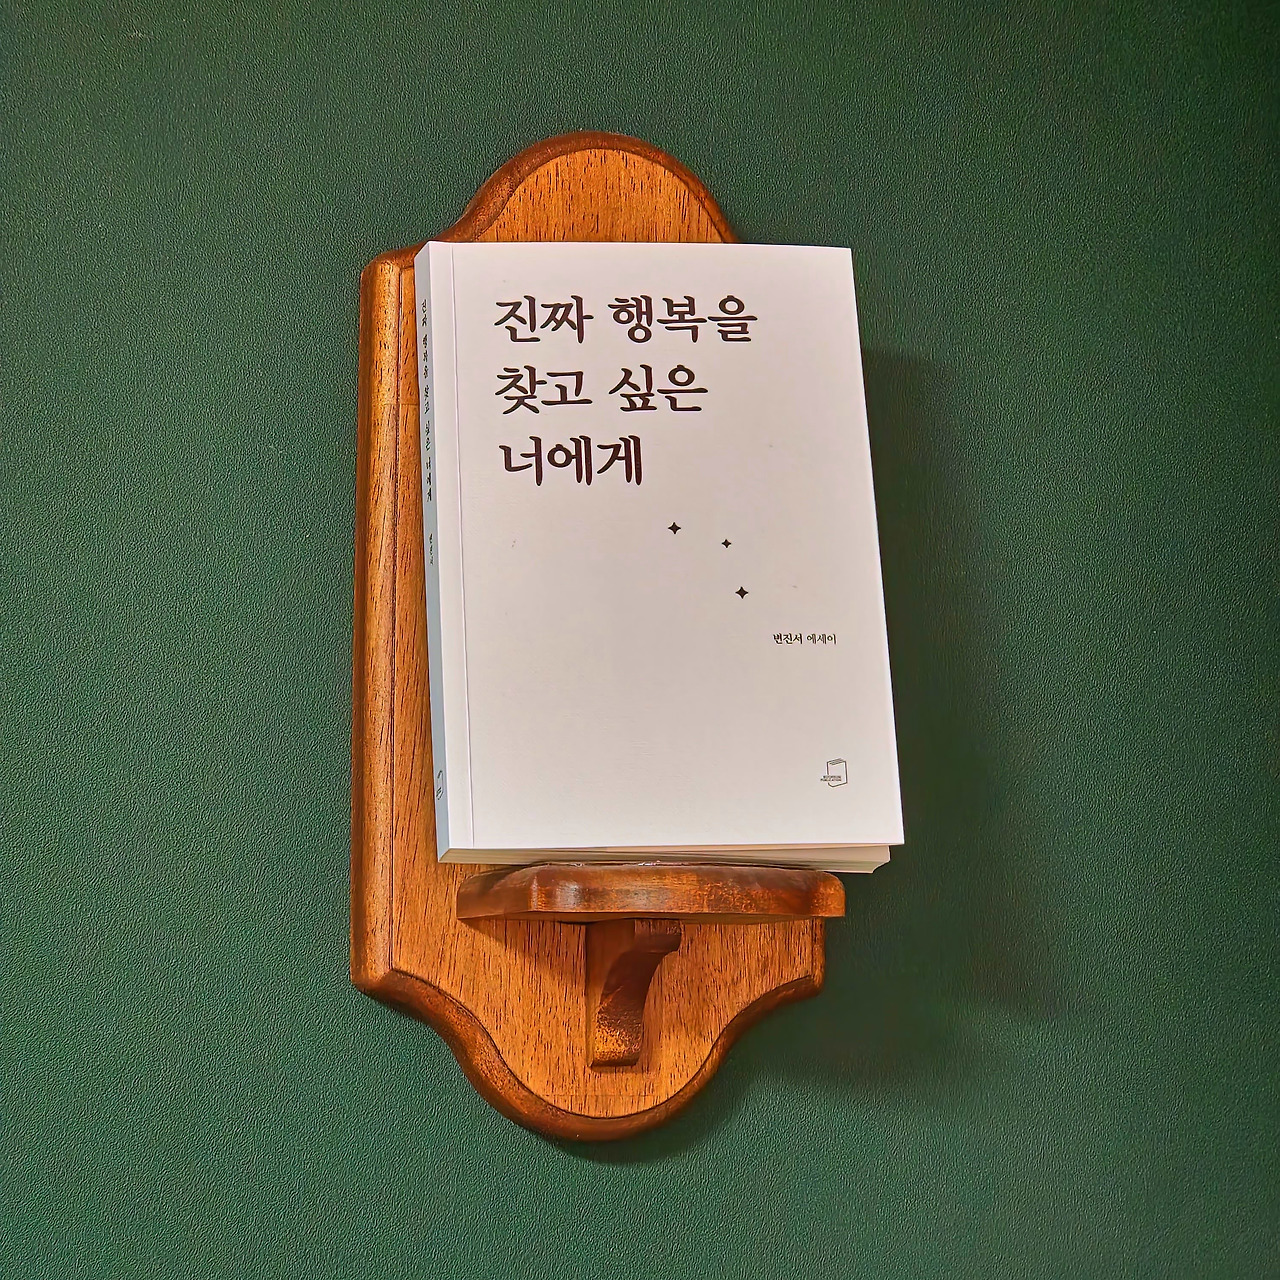 진짜 행복을
찾고 싶은
너에게
변진서 에세이
진짜 행복을 찾고 싶은 너에게